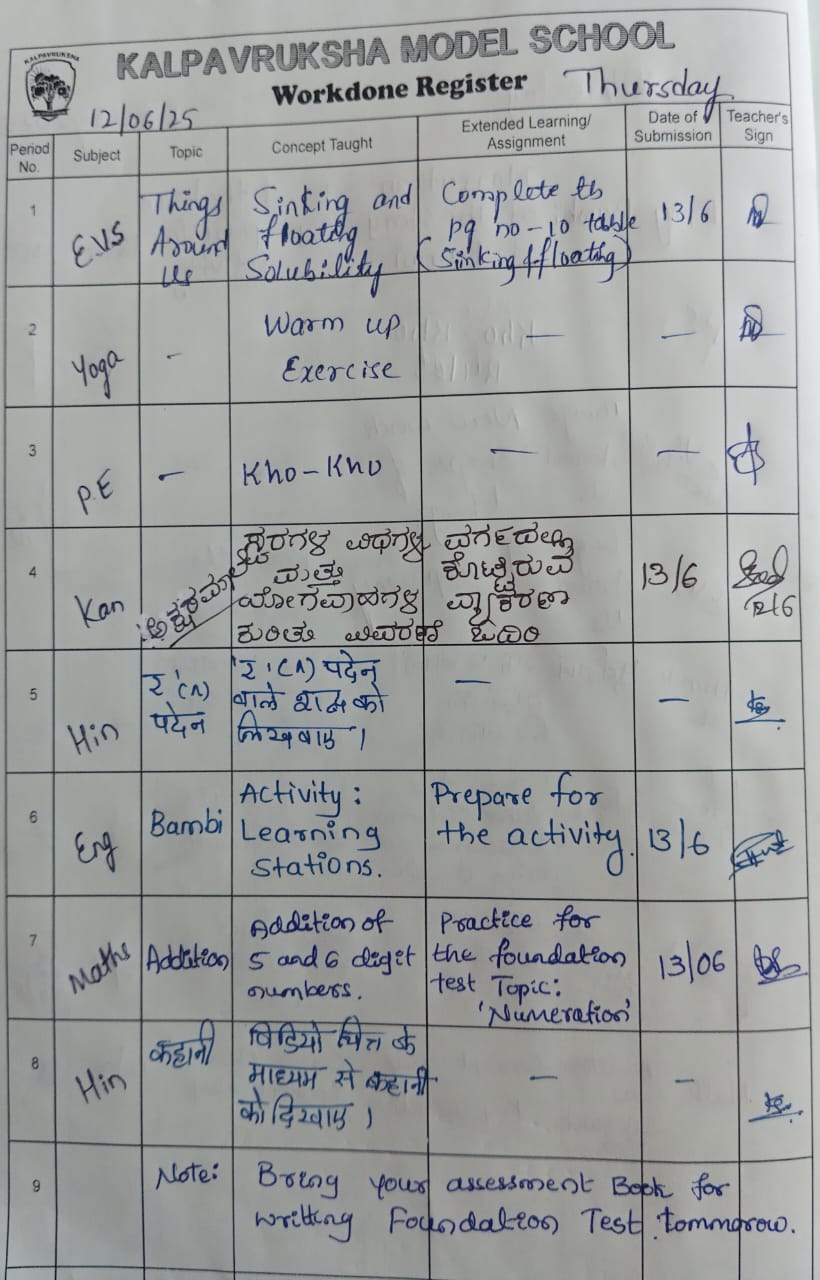 KALPAVRUKSHA
KALPAVRUKSHA MODEL SCHOOL
Workdone Register
Thursday
12/06/25
Period No. Subject Topic Concept Taught Extended Learning/ Assignment Date of Submission Teacher's Sign
1 EVS Things Around Us Sinking and floating Solubility Complete tb pg no-10 table (Sinking & floating) 13/6
2 Yoga - Warm up Exercise — —
3 P.E - Kho-Kho — —
4 Kan ಅಕ್ಷರಮಾಲೆ ಸ್ವರಗಳ ವಿಧಗಳು ಮತ್ತು ಯೋಗವಾಹಗಳ ಕುರಿತು ವಿವರಣೆ ವರ್ಗದಲ್ಲಿ ಕೊಟ್ಟಿರುವ ವ್ಯಾಕರಣ ಓದಿರಿ 13/6 12/6
5 Hin र (੧) पदेन 'र' (੧) पदेन वाले शब्द को लिखवाए । — —
6 Eng Bambi Activity: Learning Stations. Prepare for the activity. 13/6
7 Maths Addition Addition of 5 and 6 digit numbers. Practice for the foundation test Topic: 'Numeration' 13/06
8 Hin कहानी विडियो चित्र के माध्यम से कहानी को दिखाए । — —
9 Note: Bring your assessment Book for
writting Foundation Test tommorow.